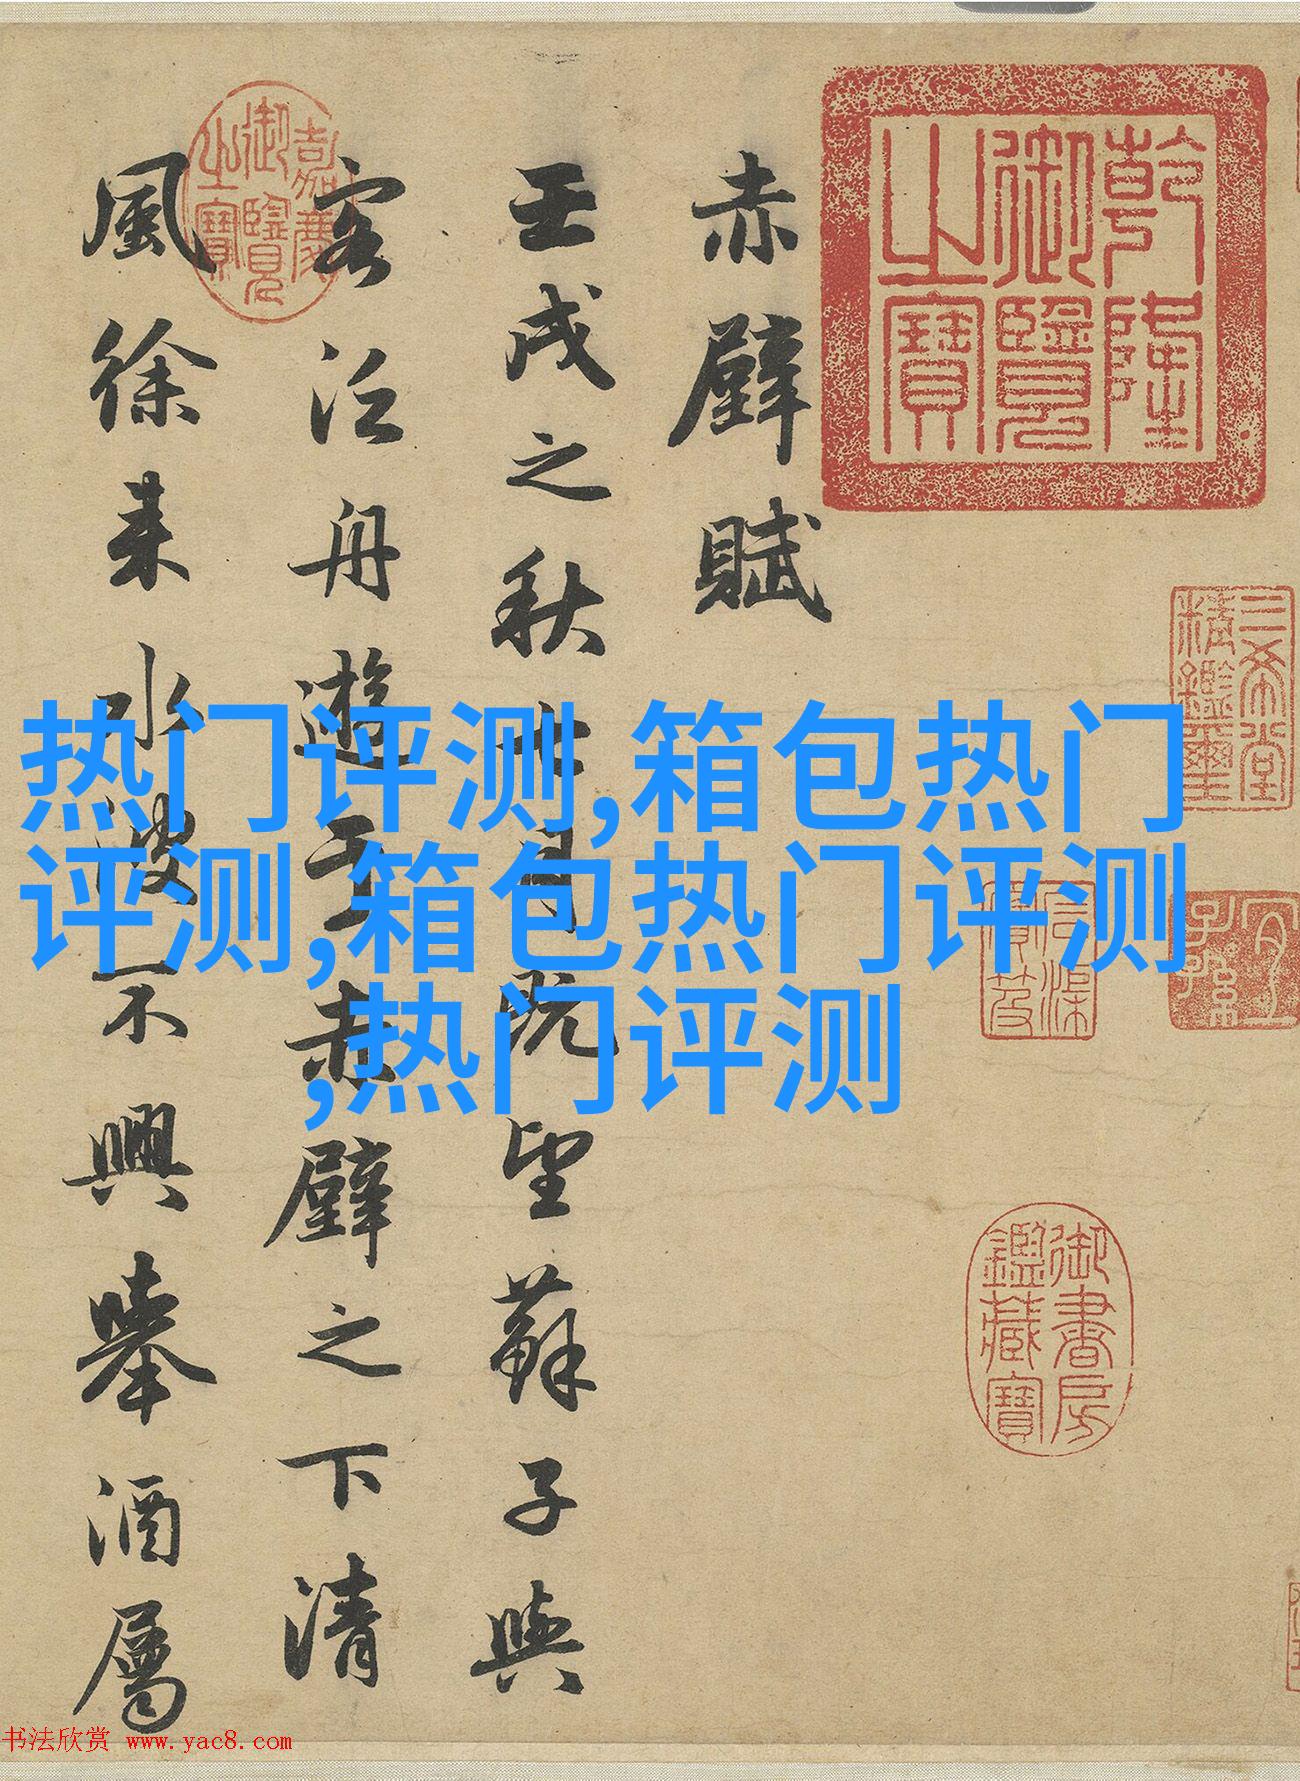 乾隆御覽之寶
三希堂精鑑璽
宜子孫
石渠寶笈
御書房鑑藏寶
赤壁賦
壬戌之秋七月既望蘇子與
客泛舟遊于赤壁之下清
風徐来水波不興舉酒屬
嘉慶御覽之寶
热门评测,箱包热门
评测,箱包热门评测
,热门评测
书法欣赏 www.yac8.com